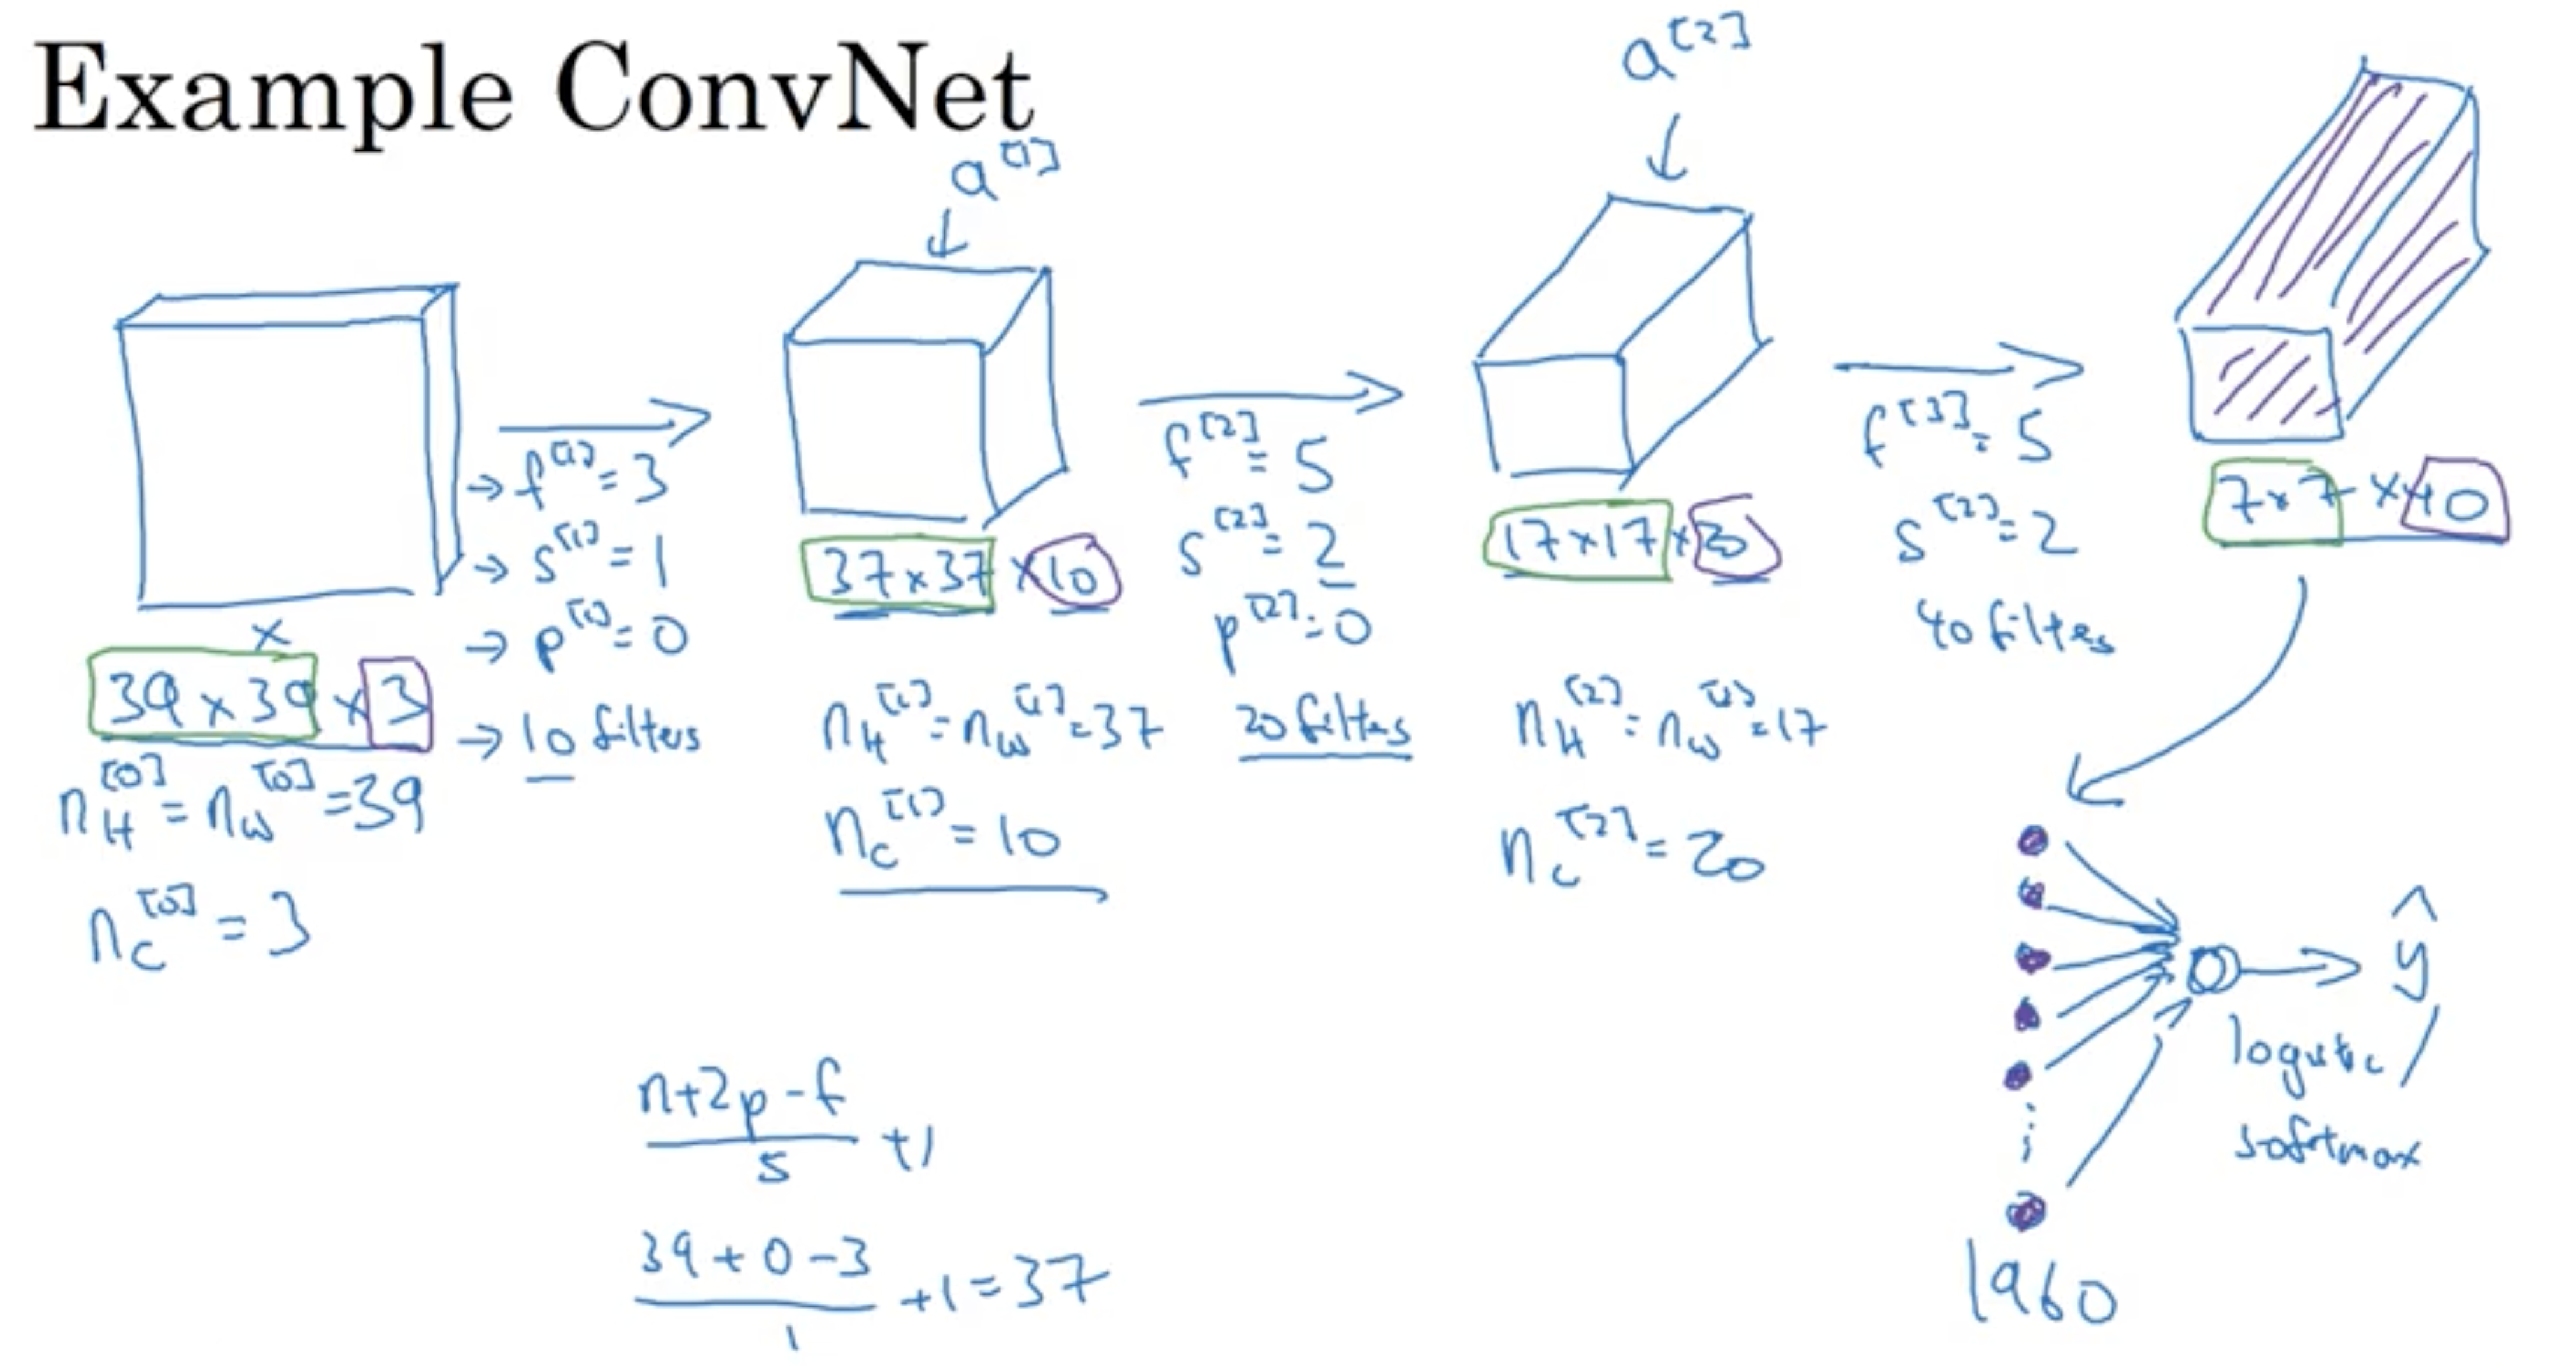 Example ConvNet
a^[1]
a^[2]
x
39 × 39 × 3
n_H^[0] = n_W^[0] = 39
n_C^[0] = 3
→ f^[1] = 3
→ s^[1] = 1
→ p^[1] = 0
→ 10 filters
37 × 37 × 10
n_H^[1] = n_W^[1] = 37
n_C^[1] = 10
f^[2] = 5
s^[2] = 2
p^[2] = 0
20 filters
17 × 17 ×
n_H^[2] = n_W^[2] = 17
n_C^[2] = 20
f^[3] = 5
s^[2] = 2
40 filters
7 × 7 × 40
n+2p-f / s +1
39 + 0 - 3 / 1 +1 = 37
ŷ
logistic /
softmax
1960